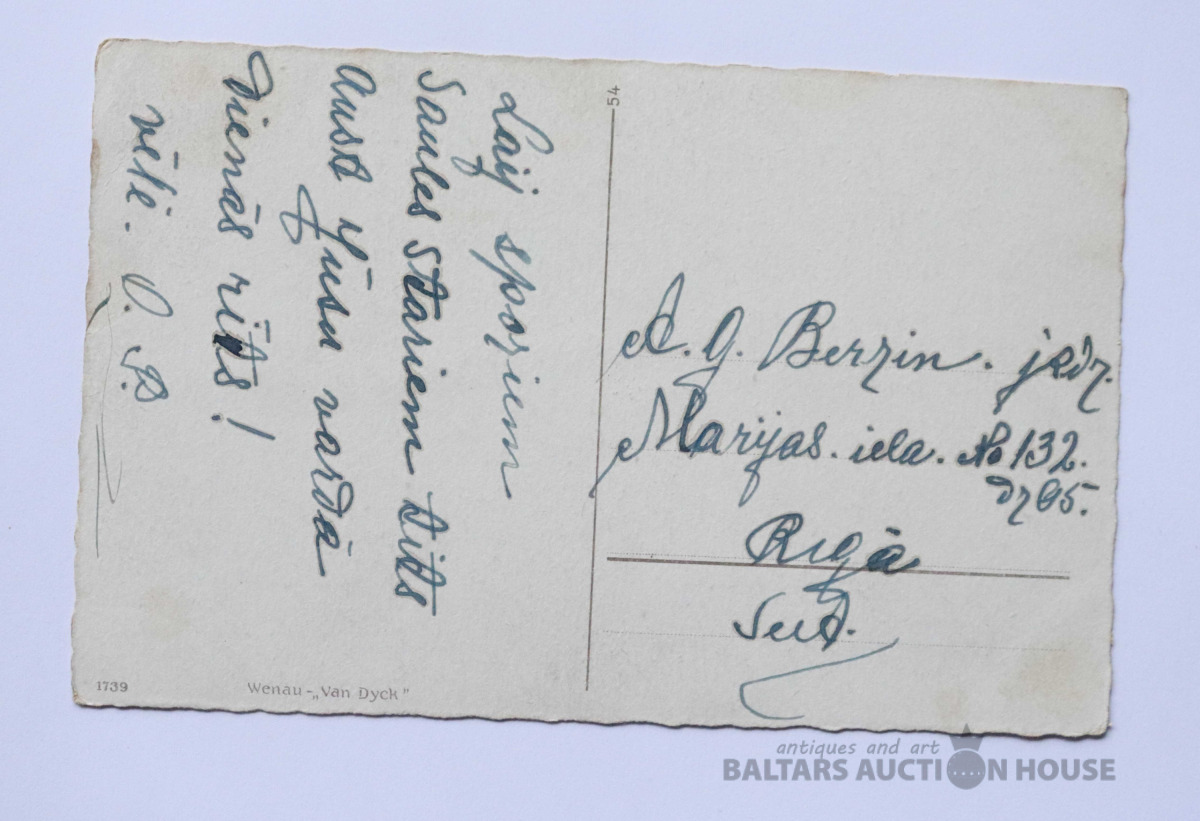 Laij spoziem
Saules stariem tits
Aust Jūsu vārdā
Dienās rīts!
vēlē. O. B.
54
A. G. Berzin. jedz.
Marijas. iela. No 132.
dz 05.
Rīgā
1739
Wenau-„Van Dyck"
antiques and art
BALTARS AUCTION HOUSE